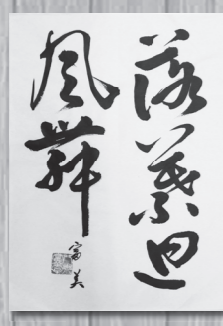 落葉迴
風舞
富美